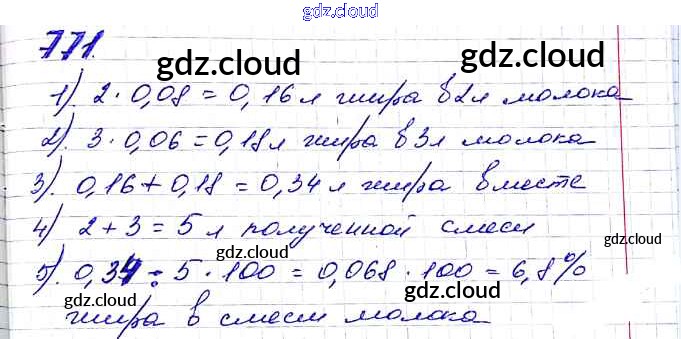 gdz.cloud
771.
gdz.cloud gdz.cloud
1). 2 · 0,08 = 0,16 л жира в 2 л молока
2). 3 · 0,06 = 0,18 л жира в 3 л молока
3). 0,16 + 0,18 = 0,34 л жира вместе
4). 2 + 3 = 5 л полученной смеси
gdz.cloud
gdz.cloud
5). 0,34 : 5 · 100 = 0,068 · 100 = 6,8%
gdz.cloud gdz.cloud
жира в смеси молока
gdz.cloud